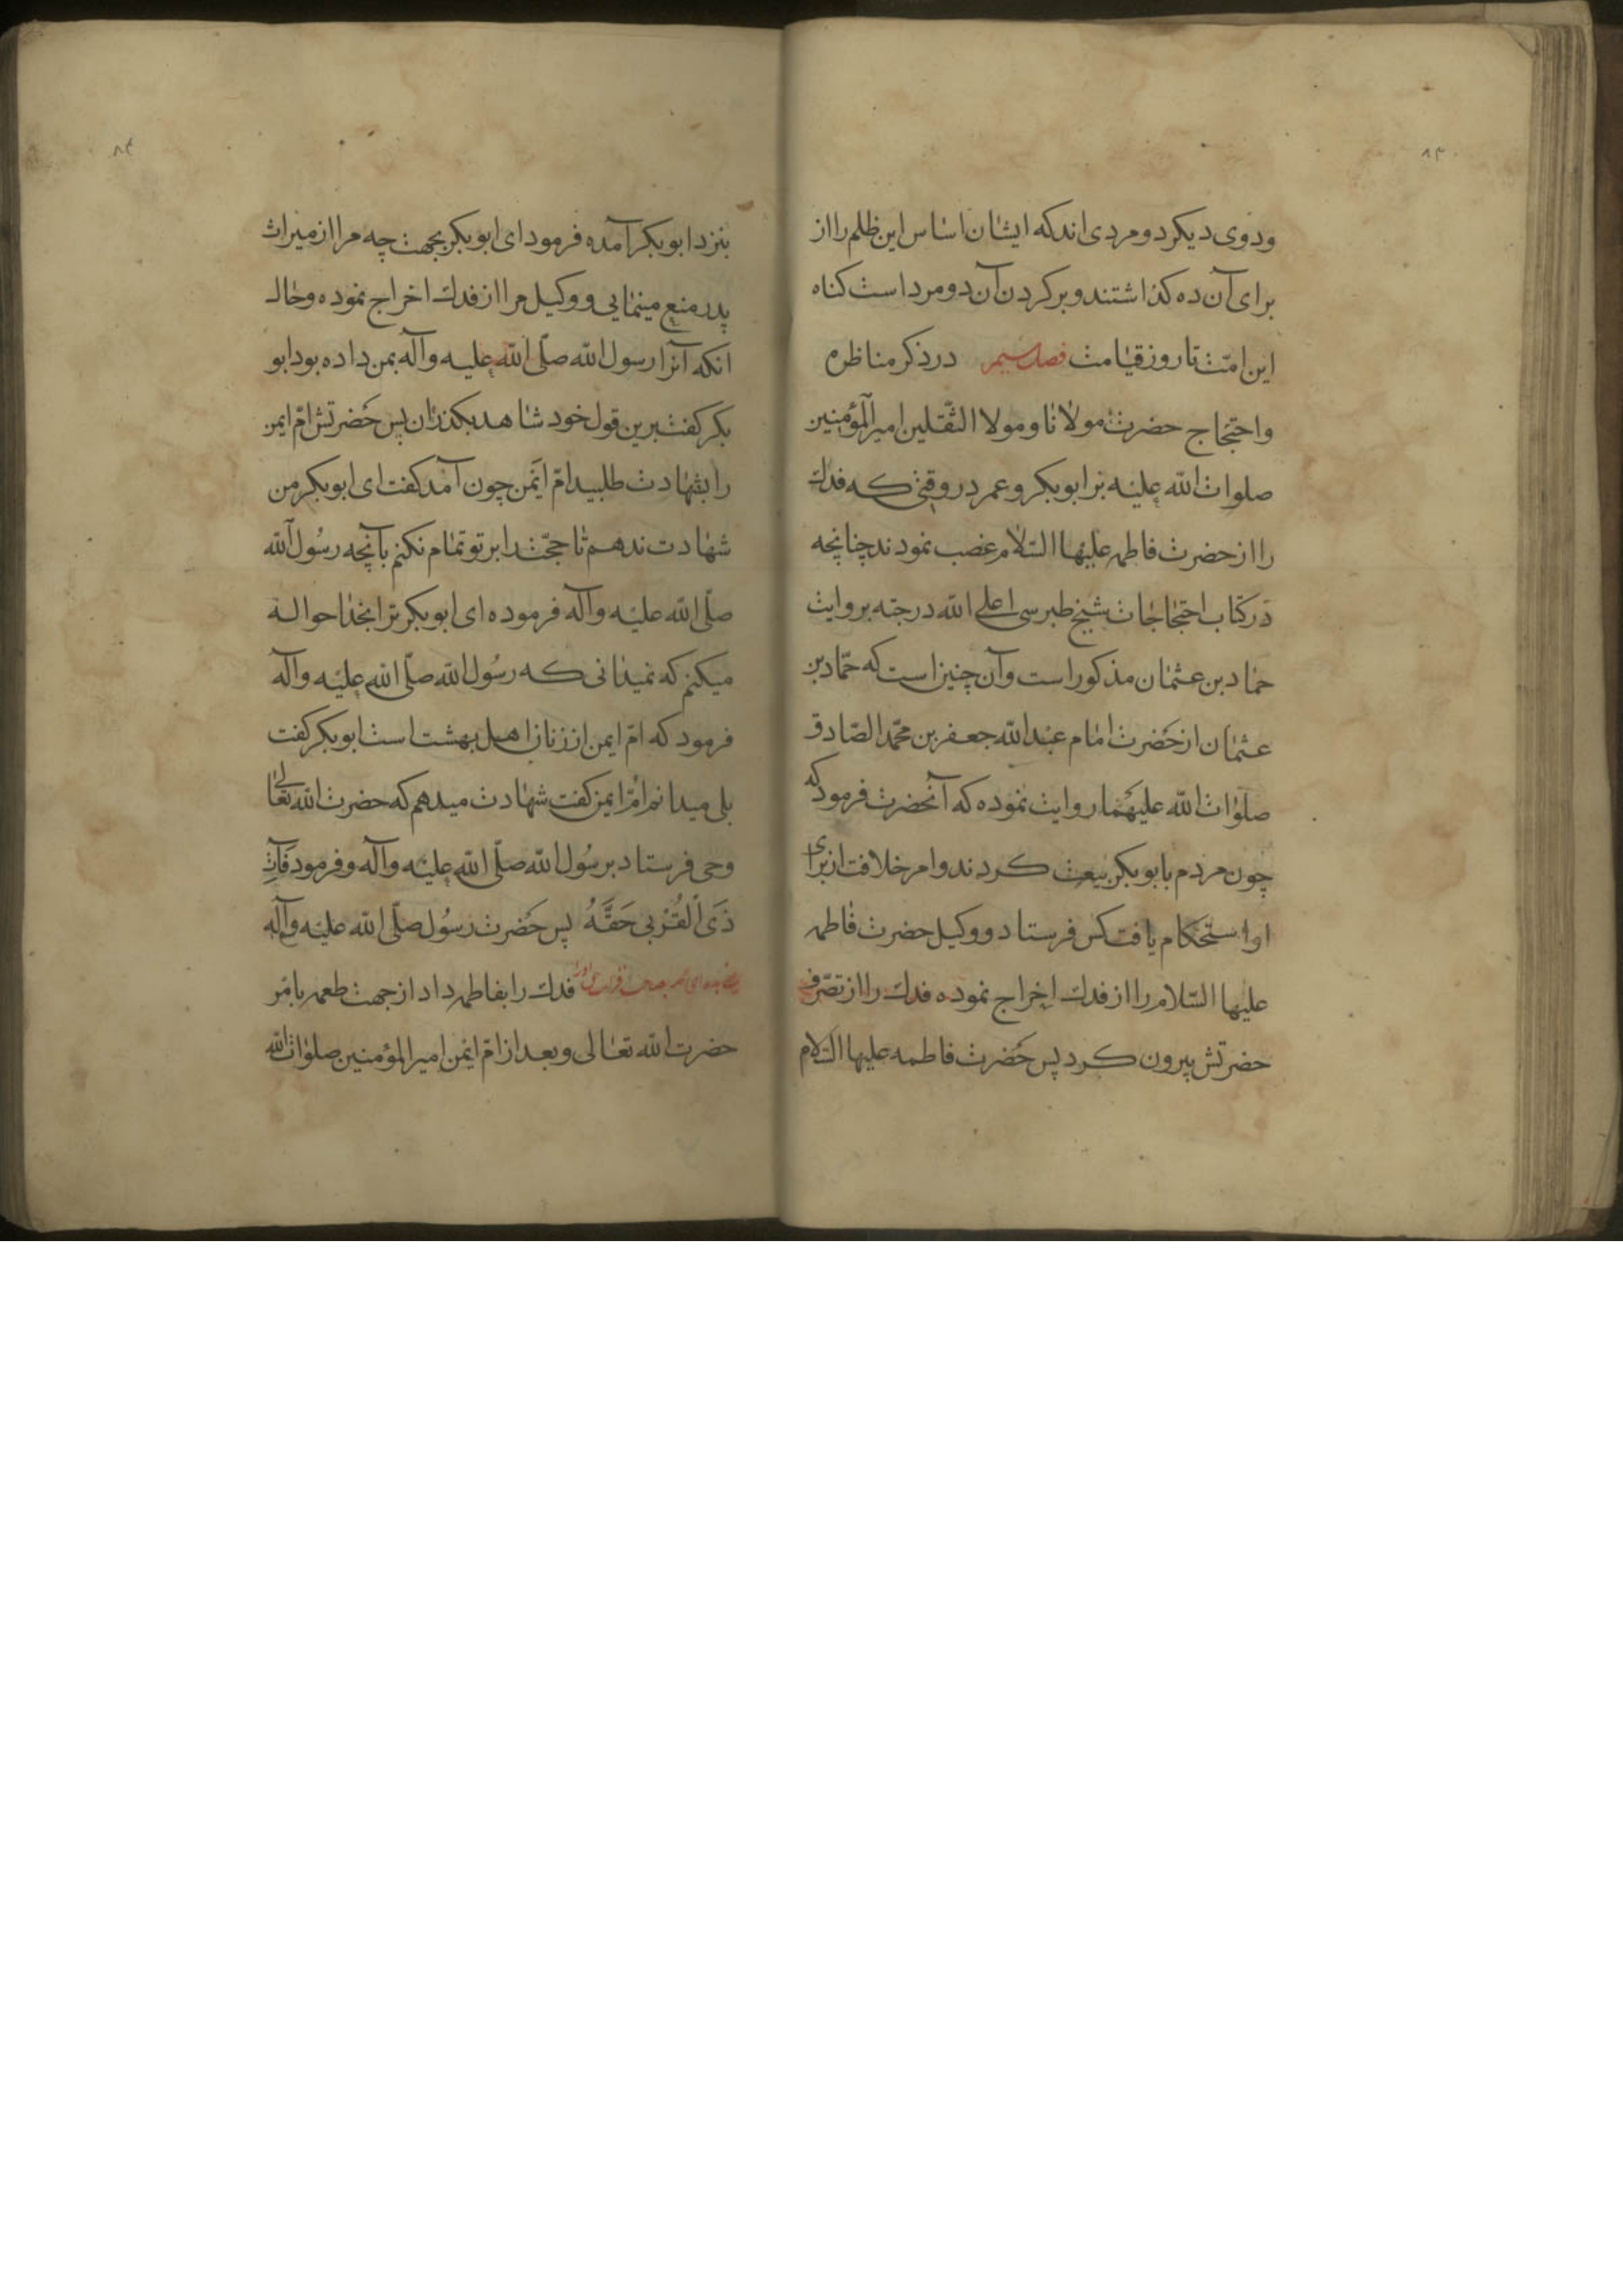 ۸۳
ودوی دیکر دو مردی اند که ایشان اساس این ظلم را از
برای آن ده کذاشتند و بر کردن آن دو مرد است کناه
این امّت تا روز قیامت فصل سیم در ذکر مناظره
و احتجاج حضرت مولانا و مولا الثّقلین امیر المؤمنین
صلوات الله علیه بر ابوبکر و عمر در وقتی که فدک
را از حضرت فاطمه علیها السّلام غصب نمودند چنانچه
در کتاب احتجاجات شیخ طبرسی اعلی الله درجته بروایت
حماد بن عثمان مذکور است و آن چنین است که حمّاد بن
عثمان از حضرت امام عبد الله جعفر بن محمّد الصّادق
صلوات الله علیهما روایت نموده که آنحضرت فرمود که
چون مردم با بوبکر بیعت کردند و امر خلافت از برای
او استحکام یافت کس فرستاد و وکیل حضرت فاطمه
علیها السّلام را از فدک اخراج نموده فدک را از تصرّف
حضرتش بیرون کرد پس حضرت فاطمه علیها السّلام
۸۴
بنزد ابوبکر آمده فرمود ای ابوبکر بجهت چه مرا از میراث
پدر منع مینمایی و وکیل مرا از فدک اخراج نموده و حال
انکه آنرا رسول الله صلّی الله علیه و آله بمن داده بود ابو
بکر کفت برین قول خود شاهد بکذران پس حضرتش امّ ایمن
را بشهادت طلبید امّ ایمن چون آمد کفت ای ابوبکر من
شهادت ندهم تا حجّت را بر تو تمام نکنم بآنچه رسول الله
صلّی الله علیه و آله فرموده ای ابوبکر ترا بخدا حواله
میکنم که نمیدانی که رسول الله صلّی الله علیه و آله
فرمود که امّ ایمن از زنان اهل بهشت است ابوبکر کفت
بلی میدانم امّ ایمن کفت شهادت میدهم که حضرت الله تعالی
وحی فرستاد بر رسول الله صلّی الله علیه و آله و فرمود فَآتِ
ذَی الْقُرْبی حَقَّهُ پس حضرت رسول صلّی الله علیه و آله
فدک را بفاطمه داد از جهت طعمه بامر
حضرت الله تعالی و بعد از امّ ایمن امیر المؤمنین صلوات الله